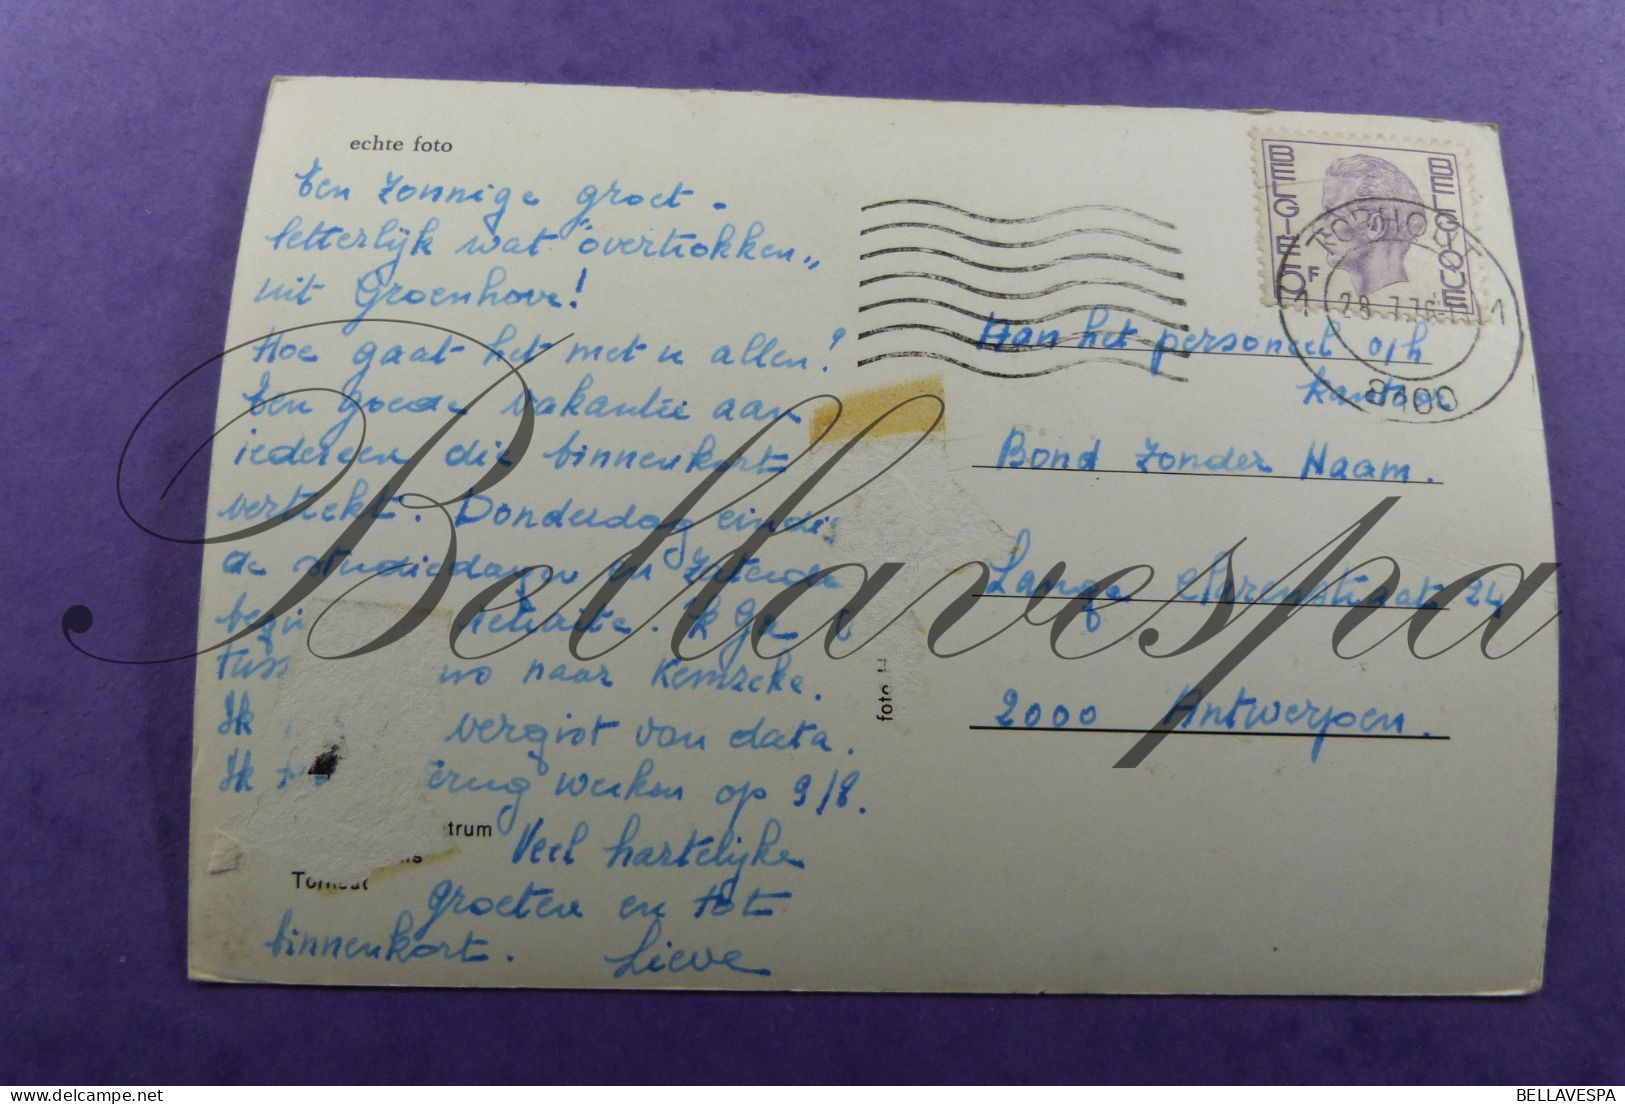 echte foto
Een zonnige groet -
letterlijk wat "overtrokken„
uit Groenhove!
Hoe gaat het met u allen?
Een goede vakantie aan
iedereen die binnenkort
vertrekt. Donderdag eindig
de studiedagen en Zaterda
begin retraite. Ik ga
Tuss naar Kemzeke.
Ik vergist van data.
Ik terug werken op 9/8.
Veel hartelijke
groeten en tot
binnenkort. Lieve
trum
Torhout
foto
BELGIE BELGIQUE
F
TORHOUT
1 28-7-76 1
8100
Aan het personeel o/h
kantoor
Bond Zonder Naam.
Lange 24
2000 Antwerpen.
Bellavespa
delcampe.net
BELLAVESPA